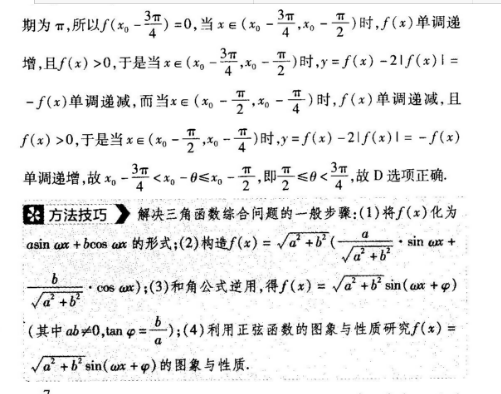 期为 π,所以f(x₀ - 3π/4) = 0,当 x ∈ (x₀ - 3π/4, x₀ - π/2)时,f(x)单调递
增,且f(x) > 0,于是当x ∈ (x₀ - 3π/4, x₀ - π/2)时,y = f(x) - 2|f(x)| =
-f(x)单调递减,而当x ∈ (x₀ - π/2, x₀ - π/4)时,f(x)单调递减,且
f(x) > 0,于是当x ∈ (x₀ - π/2, x₀ - π/4)时,y = f(x) - 2|f(x)| = -f(x)
单调递增,故 x₀ - 3π/4 < x₀ - θ ≤ x₀ - π/2,即 π/2 ≤ θ < 3π/4,故 D 选项正确.
方法技巧 解决三角函数综合问题的一般步骤:(1)将f(x)化为
asin ωx + bcos ωx 的形式;(2)构造f(x) = √(a² + b²)(a/√(a² + b²) · sin ωx +
b/√(a² + b²) · cos ωx);(3)和角公式逆用,得f(x) = √(a² + b²)sin(ωx + φ)
(其中 ab≠0,tan φ = b/a);(4)利用正弦函数的图象与性质研究f(x) =
√(a² + b²)sin(ωx + φ)的图象与性质.